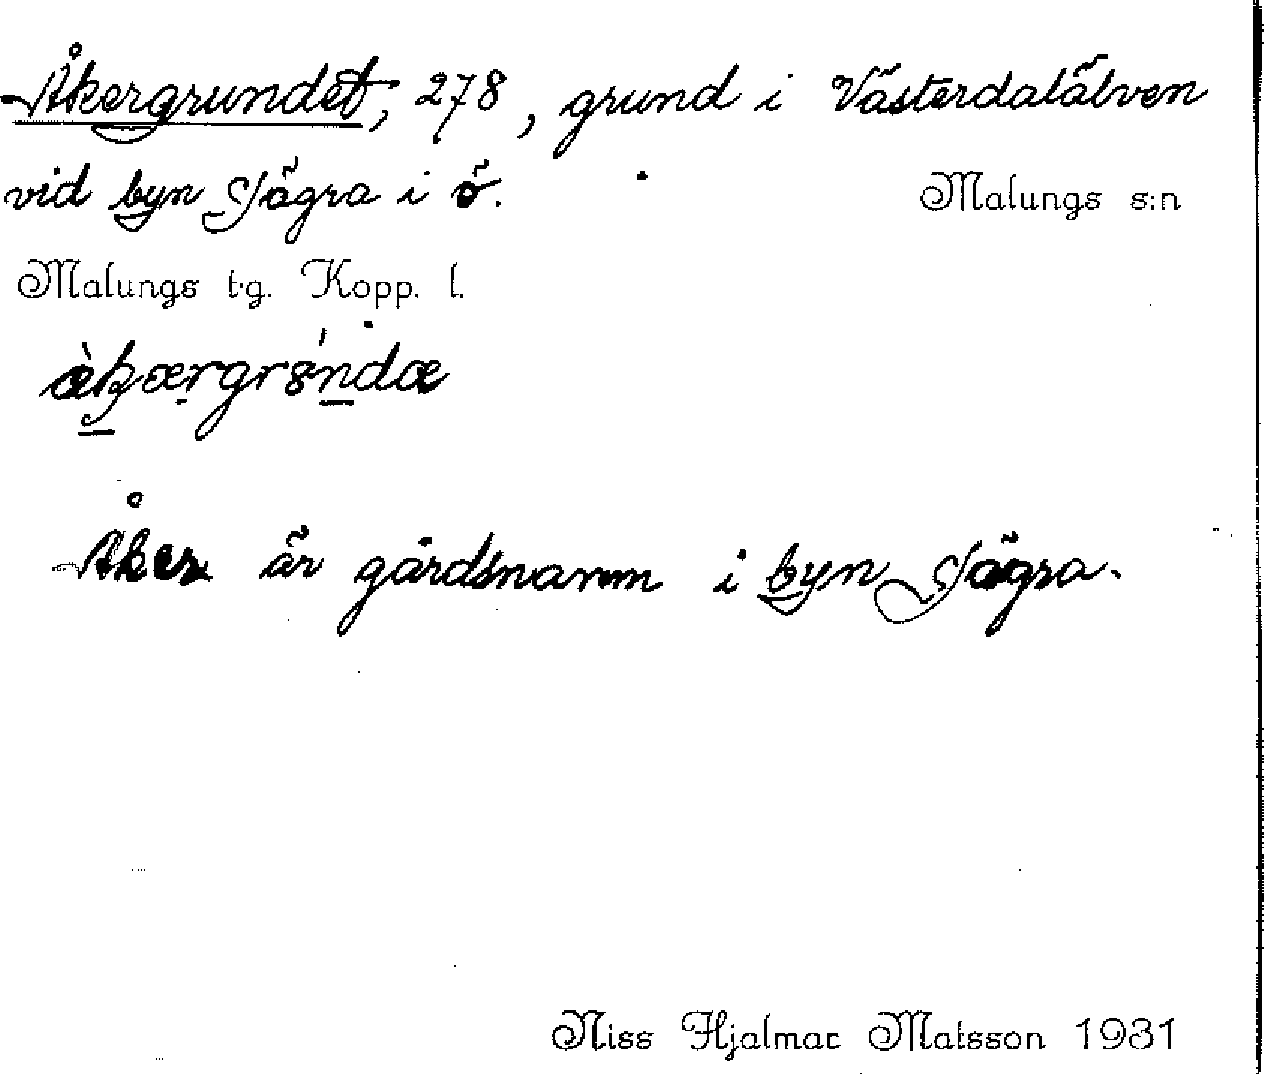 Åkergrundet, 278, grund i Västerdalälven
vid byn Jägra i ö. Malungs s:n
Malungs t.g. Kopp. l.
Åker är gårdsnamn i byn Jägra.
Niss Hjalmar Matsson 1931